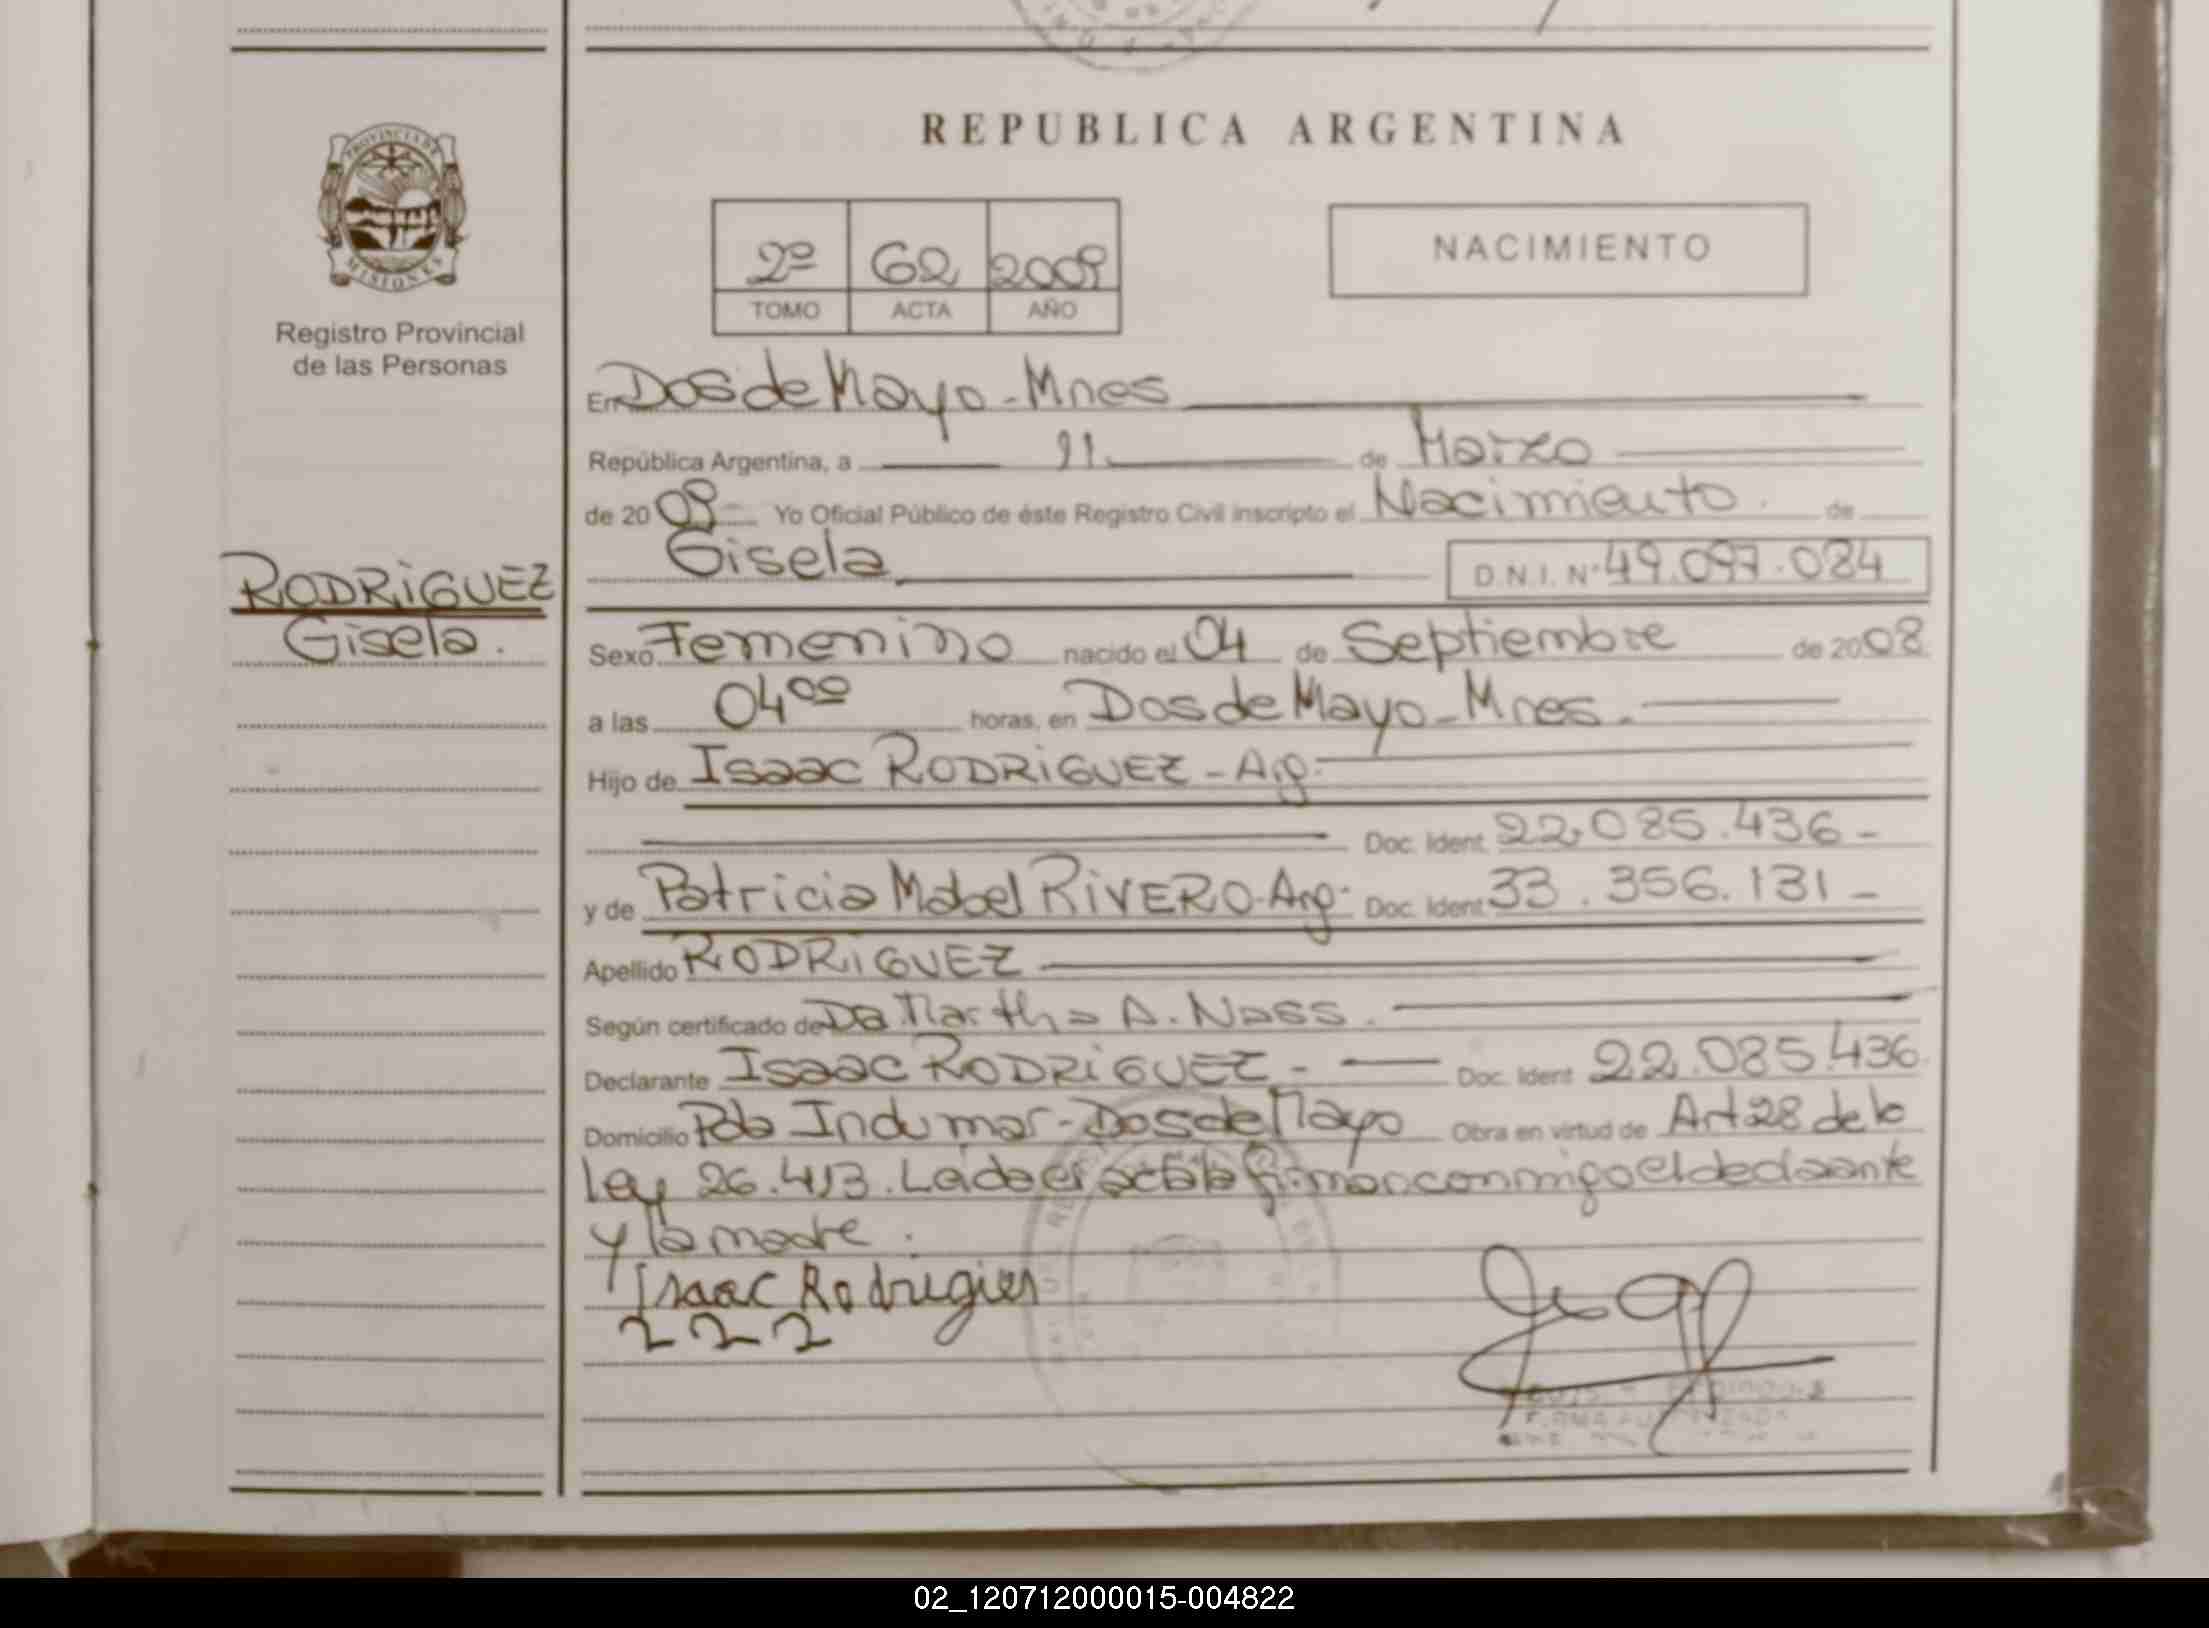 REPUBLICA ARGENTINA
PROVINCIA DE
MISIONES
Registro Provincial
de las Personas
2º 62 2009
TOMO ACTA AÑO
NACIMIENTO
En Dos de Mayo - Mnes
República Argentina, a 11 de Marzo
de 2009 Yo Oficial Público de éste Registro Civil inscripto el Nacimiento. de
Gisela D.N.I. Nº 49.097.084
RODRiGUEZ
Gisela.
Sexo Femenino nacido el 04 de Septiembre de 2008
a las 04ºº horas, en Dos de Mayo - Mnes.
Hijo de Isaac RODRiGUEZ - Arg.
Doc. Ident. 22.085.436 -
y de Patricia Mabel RiVERO - Arg. Doc. Ident. 33.356.131 -
Apellido RODRiGUEZ
Según certificado de Da. Martha A. Nass.
Declarante Isaac RODRiGUEZ - Doc. Ident 22.085.436
Domicilio Pda Indumar - Dos de Mayo Obra en virtud de Art 28 de la
ley 26.413. Leida el acta la firman conmigo el declarante
y la madre.
Isaac Rodrigies
222
02_120712000015-004822